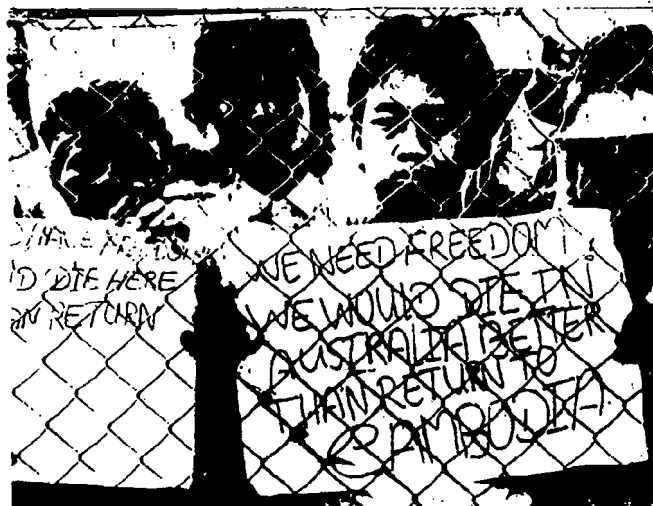 D DIE HERE
RETURN
WE NEED FREEDOM.
WE WOULD DIE IN
AUSTRALIA BETTER
THAN RETURN TO
CAMBODIA